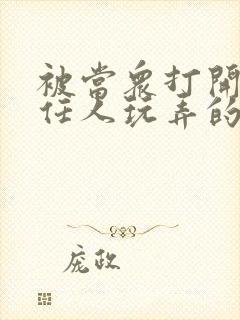 被當眾打開
任人玩弄的
庞政